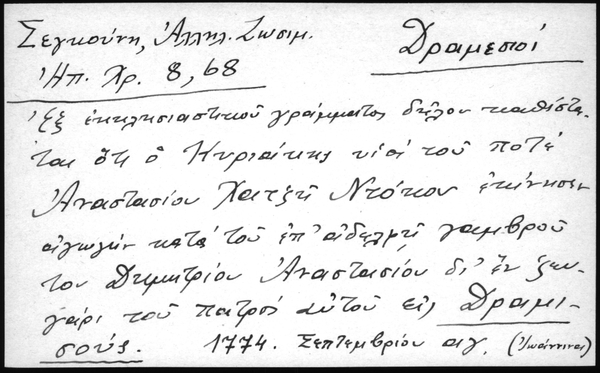 Σεγκούνη, Ἀλληλ. Ζωσιμ.
Δραμεσοί
Ἠπ. Χρ. 8, 68
Ἐξ ἐκκλησιαστικοῦ γράμματος δῆλον καθίστα-
ται ὅτι ὁ Κυριάκης υἱὸς τοῦ ποτὲ
Ἀναστασίου Χατζῆ Ντόκου ἐκίνησεν
ἀγωγὴν κατὰ τοῦ ἐπ' ἀδελφῇ γαμβροῦ
του Δημητρίου Ἀναστασίου δι' ἓν ζευ-
γάρι τοῦ πατρός αὐτοῦ εἰς Δραμι-
σούς. 1774. Σεπτεμβρίου αῃ. (Ἰωάννινα)